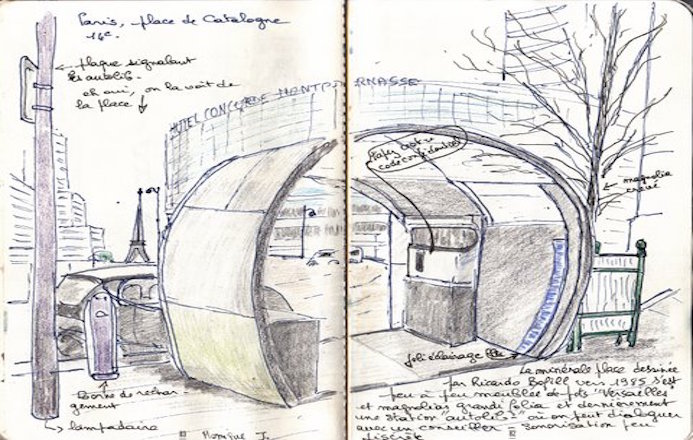 Paris, place de Catalogne
16c.
plaque signalant
les autolib.
eh oui, on la voit de
la place
HOTEL CONCORDE MONTPARNASSE
Tapez votre
code confidentiel
magnolia
crevé
joli éclairage
Borne de rechar-
gement
lampadaire
La minérale place dessinée
par Ricardo Bofill vers 1985 s'est
peu à peu meublée de pots "Versailles"
et magnolias grandiflolia et dernièrement
une station "autolib" où on peut dialoguer
avec un conseiller - sonorisation peu
discrète
Monique J.